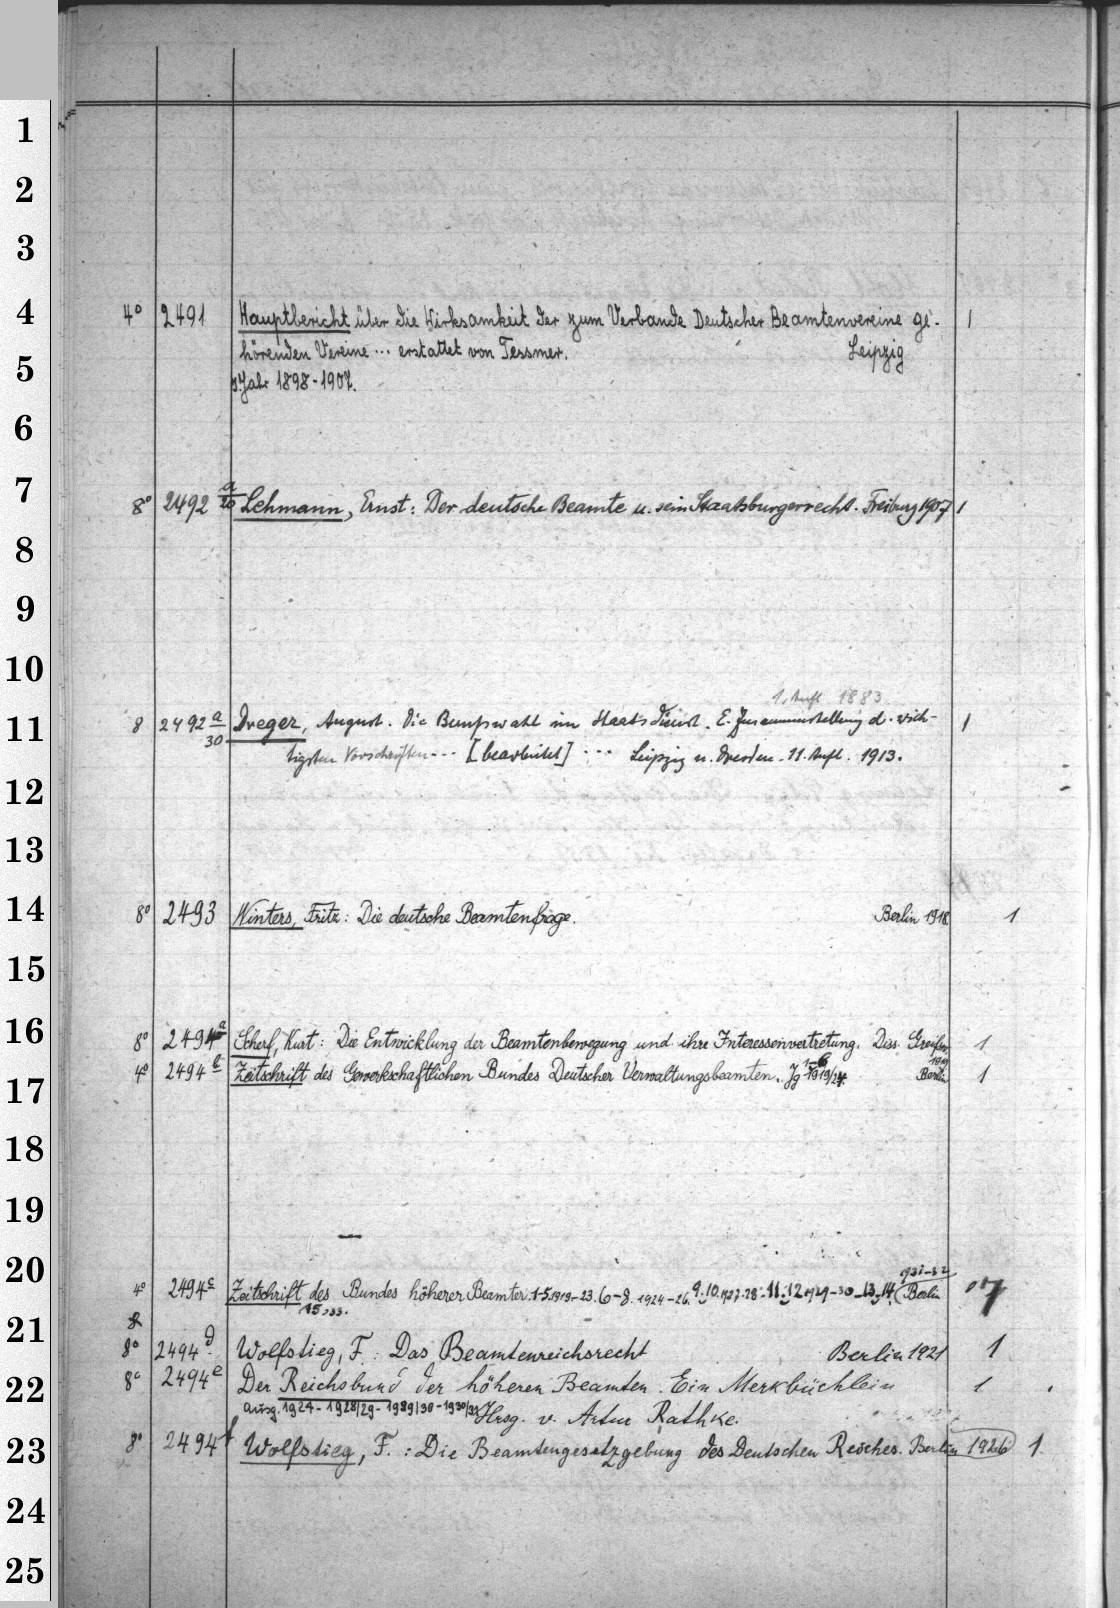 1
2
3
4
5
6
7
8
9
10
11
12
13
14
15
16
17
18
19
20
21
22
23
24
25
4° 2491 Hauptbericht über die Wirksamkeit der zum Verbande Deutscher Beamtenvereine ge- 1
hörenden Vereine ... erstattet von Tessmer. Leipzig
Jahr 1898-1907.
8° 2492 a/20 Lehmann, Ernst: Der deutsche Beamte u. sein Staatsburgerrecht. Freiburg 1907 1
1. Aufl 1883
8 2492 a/30 Dreger, August. Die Berufswahl im Staatsdienst. E. Zusammenstellung d. wich- 1
tigsten Vorschriften... [bearbeitet] ... Leipzig u. Dresden. 11. Aufl. 1913.
8° 2493 Winters, Fritz: Die deutsche Beamtenfrage. Berlin 1918 1
8° 2494a Scherf, Kurt: Die Entwicklung der Beamtenbewegung und ihre Interessenvertretung. Diss. Greifsw. 1
1919
4° 2494b Zeitschrift des Gewerkschaftlichen Bundes Deutscher Verwaltungsbeamten. Jg 1-6 1919/24. Berlin 1
1931-32
4° 2494c Zeitschrift des Bundes höherer Beamter. 1-5.1919-23. 6-8. 1924-26. 9.10.1927-28. 11.12 1929-30 13.14. Berlin 7
15,33.
8° 2494d Wolfstieg, F.: Das Beamtenreichsrecht Berlin 1921 1
8° 2494e Der Reichsbund der höheren Beamten. Ein Merkbüchlein 1
Ausg. 1924-1928/29-1929/30-1930/31 Hrsg. v. Artur Rathke.
8° 2494f Wolfstieg, F.: Die Beamtengesetzgebung des Deutschen Reiches. Berlin 1926 1